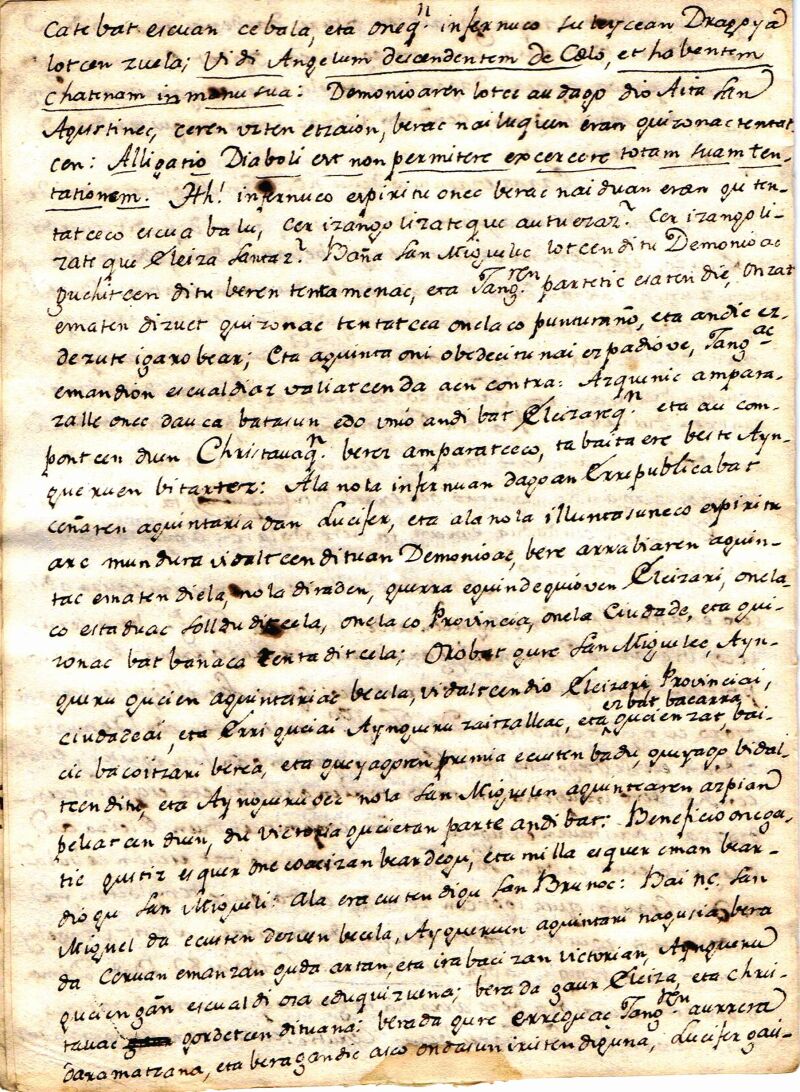 catebat escuan cebala, eta oneqⁿ. infernuco suteycean Draggya
lotcen zuela; Vidi Angelum descendentem de Cœlo, et habentem
chatenam in manu sua: Demonioaren lotce au dago dio Aita San
Agustinec, ceren vzten etzaion, berac nai luquen eran guizonac tentat-
cen: Alligatio Diaboli est non permitere excercere totam suam ten-
tationem. Ah! infernuco espiritu onec berac nai duan eran gu ten-
tatceco escua balu, cer izango lizateque au tuerazʳ. Cer izango li-
zateque Eleiza Santazʳ. Baña San Miguelec lotcen ditu Demonioac
guchitcen ditu beren tentamenac, eta Tang.ren partetic esaten die, onzat
ematen dizuet guizonac tentatcea onelaco punturaño, eta andic ez-
dezute igaro bear; Eta aguintaoni obedecitu nai ezpadiove, Tang.ac
emandion escualdiaz valiatcen da aen contra: Arguinic ampara-
zalle onec dauca batasun edo vnio andi bat Eleizareqⁿ. eta au com-
pontcen duen Christauaqⁿ. berez amparatceco, ta baita ere beste Ayn-
gueruen bitartez: Ala nola infernuan dagoan Errepublica bat
ceñaren aguintaria dan Lucifer, eta ala nola illuntasuneco espiritu
arc mundura vidaltcen dituan Demonioac, bere arrabiaren aguin-
tac ematen diela, nola diraden, guerra eguindeguioven Eleizari, onela-
co estaduac solldu ditcela, onelaco Provincia, onela Ciudade, eta gui-
zonac bat banaca tenta ditcela; Orobat gure San Miguelec, Ayn-
gueru gucien aguintariac becela, vidaltcen dio Eleizari Provinciai,
ciudadeai, eta Erri guciai Ayngueru zaitzalleac, eta ez bat bacarra gucienzat, bai-
cic bacoitzari berea, eta gueyagoren premia ecusten badu, gueyago bidal-
tcen ditu, eta Ayngueru oec nola San Miguelen aguintearen azpian
peleatcen duen, du victoria gucietan parte andi bat: Beneficio onega-
tic gustiz esquer one coac izan beardegu, eta milla esquer eman bear-
diogu San Migueli: Ala eracusten digu San Brunoc: Bai nç. San
Miguel da ecusten dezuen becela, Aygueruen aguintari nagusia, bera
da Ceruan emanzan guda artan, eta irabaci zan victorian, Ayngueru
gucien gañ escualdi osa eduquizuena; bera da gaur Eleiza, eta Chris-
tauac gordetcen dituana: bera da gure Erreguac Tang.ren aurrera
daramatzana, eta beragandic asco ondasun iristen diguna, Lucifer gais-